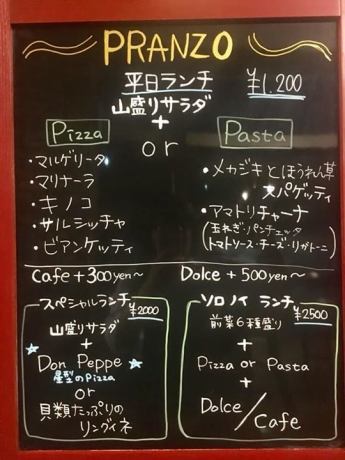 PRANZO
平日ランチ ¥1,200
山盛りサラダ
+
Pizza or Pasta
・マルゲリータ
・マリナーラ
・キノコ
・サルシッチャ
・ビアンケッティ
・メカジキとほうれん草
スパゲッティ
・アマトリチャーナ
(玉ねぎ・パンチェッタ
トマトソース・チーズ・リガトーニ)
Cafe +300yen~ Dolce +500yen~
スペシャルランチ ¥2000
山盛りサラダ
+
Don Peppe
星型のPizza
or
貝類たっぷりの
リングイネ
ソロノイ ランチ ¥2500
前菜6種盛り
+
Pizza or Pasta
+
Dolce/Cafe